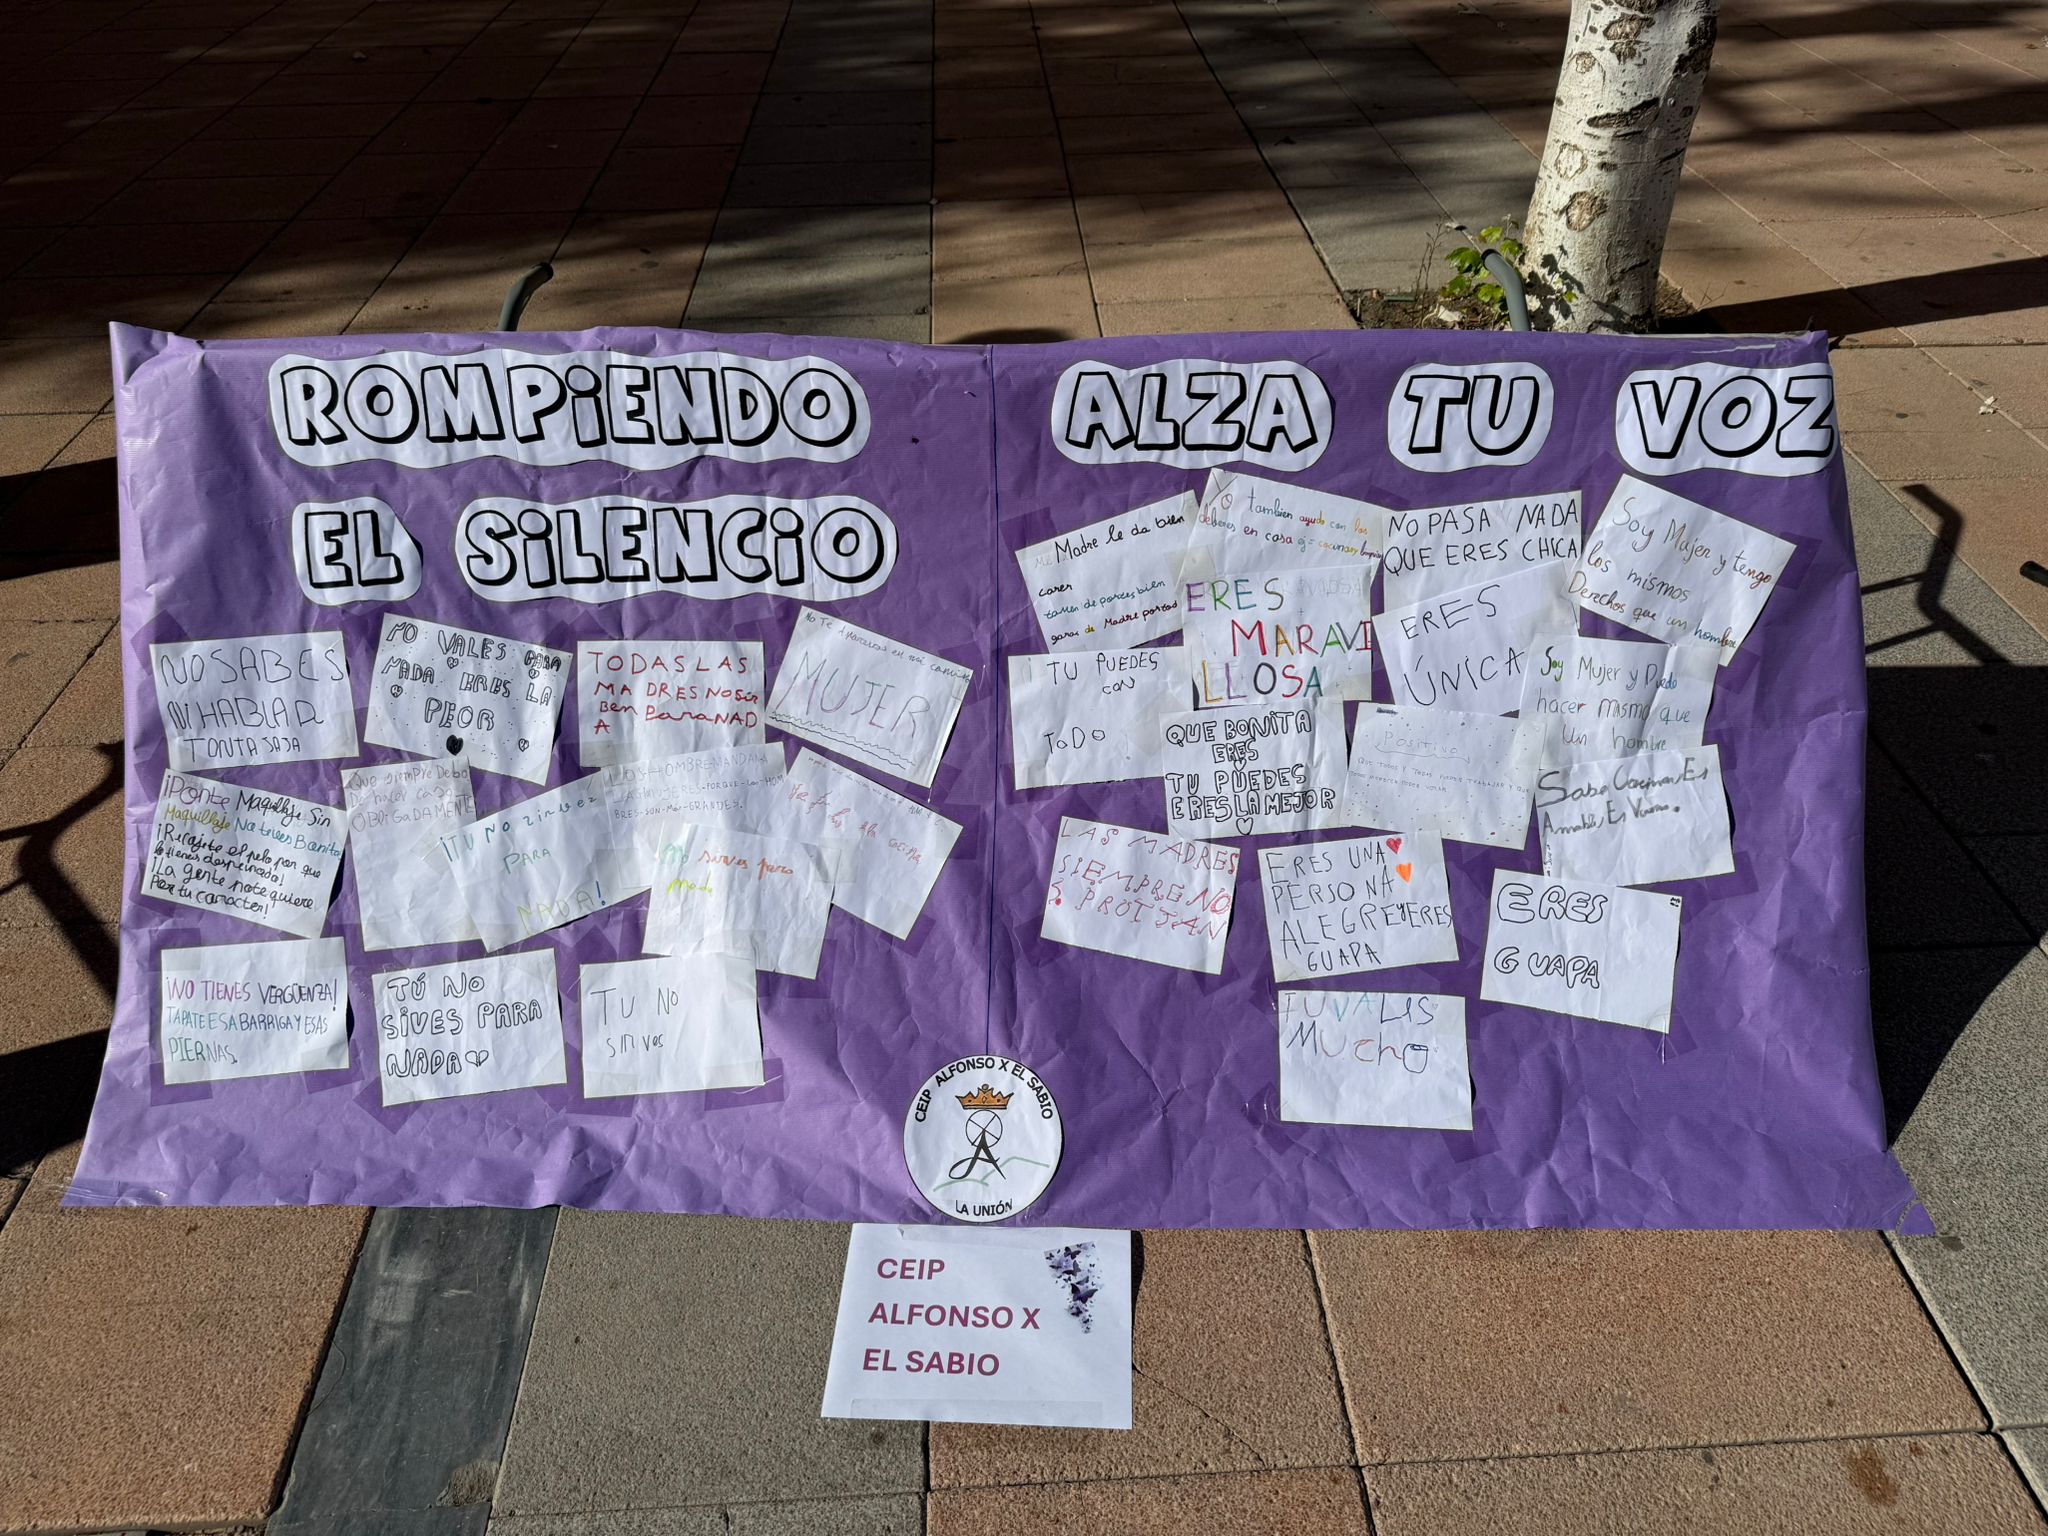 ROMPIENDO
EL SILENCIO
NO SABES
NI HABLAR
TONTA JAJA
NO VALES PARA
NADA ERES LA
PEOR
TODAS LAS
MADRES NO SIR
BEN PARA NAD
A
No Te aparezcas en mi camino
MUJER
¡Ponte Maquillaje Sin
Maquillaje No tienes Bonita
¡Recojete el pelo por que
lo tienes despeinado!
¡La gente no te quiere
Por tu carácter!
Que siempre Debo
De hacer caso
OBLIGADAMENTE
¡TU NO sirvez
PARA
NADA!
LOS-HOMBRE-MANDAN-A
LAS-MUJERES-PORQUE-LOS-HOM
BRES-SON-MÁS-GRANDES.
No sirves para
nada
cocinar
¡NO TIENES VERGÜENZA!
TAPATE ESA BARRIGA Y ESAS
PIERNAS.
TÚ NO
SIVES PARA
NADA
TU NO
sirves
ALZA TU VOZ
Mi Madre le da bien
corer
YO tambien ayudo con los
deberes en casa ej= cocinar, limpiar
NO PASA NADA
QUE ERES CHICA
Soy Mujer y tengo
los mismos
Derechos que un hombre
TU PUEDES
con
ToDO
ERES
MARAVI
LLOSA
ERES
ÚNICA
Soy Mujer y Puedo
hacer mismo que
Un hombre
QUE BONITA
ERES
TU PUEDES
ERES LA MEJOR
POSITIVO
QUE TODOS Y TODAS PUEDEN TRABAJAR Y QUE
LAS MADRES
SIEMPRE NO
S PROTJAN
ERES UNA
PERSONA
ALEGRE Y ERES
GUAPA
ERES
GUAPA
TU VALES
MUCHO
CEIP ALFONSO X EL SABIO
LA UNIÓN
CEIP
ALFONSO X
EL SABIO